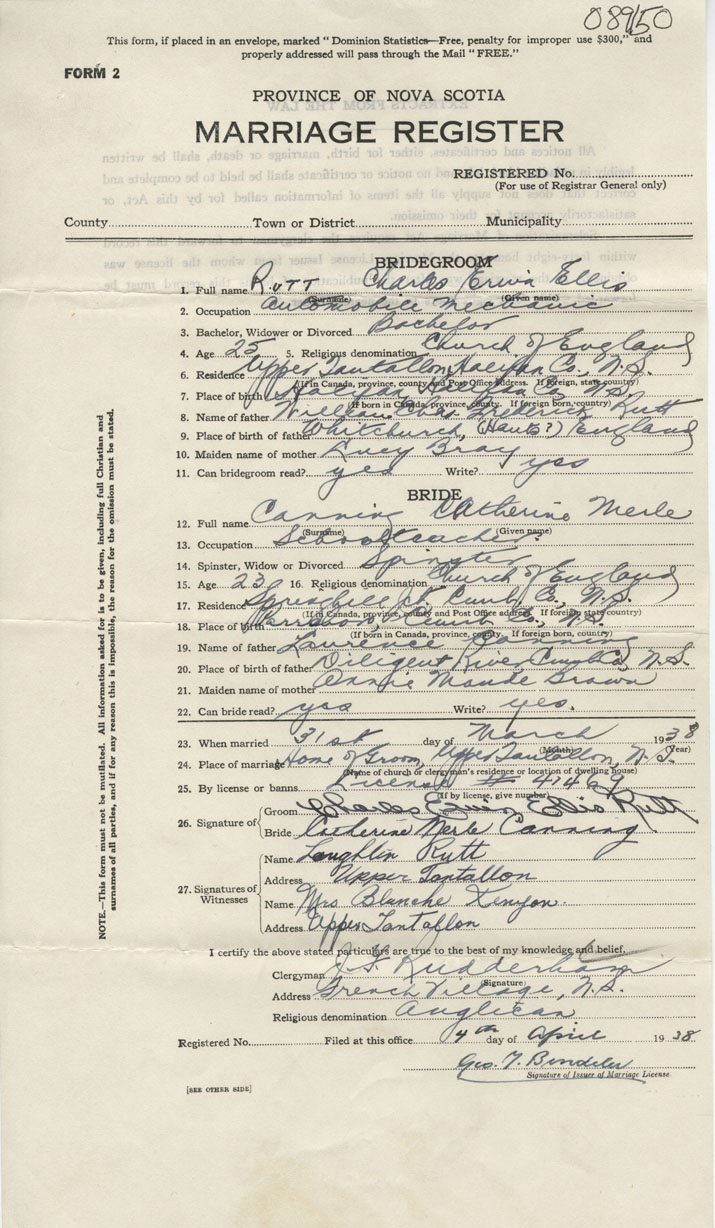 08950
This form, if placed in an envelope, marked "Dominion Statistics—Free, penalty for improper use $300," and
properly addressed will pass through the Mail "FREE."
FORM 2
PROVINCE OF NOVA SCOTIA
MARRIAGE REGISTER
REGISTERED No.
(For use of Registrar General only)
County Town or District Municipality
BRIDEGROOM
1. Full name Rutt Charles Erwin Ellis
(Surname) (Given name)
2. Occupation Automobile Mechanic
3. Bachelor, Widower or Divorced Bachelor
4. Age 25 5. Religious denomination Church of England
6. Residence Upper Tantallon, Halifax Co., N.S.
(If in Canada, province, county and Post Office address. If foreign, state country)
7. Place of birth Halifax, Halifax Co., N.S.
(If born in Canada, province, county. If foreign born, country)
8. Name of father William Frederick Rutt
9. Place of birth of father Whitchurch, (Hants?) England
10. Maiden name of mother Lucy Bray
11. Can bridegroom read? yes Write? yes
BRIDE
12. Full name Canning Catherine Merle
(Surname) (Given name)
13. Occupation Schoolteacher
14. Spinster, Widow or Divorced Spinster
15. Age 23 16. Religious denomination Church of England
17. Residence Springhill Jct. Cumb. Co., N.S.
(If in Canada, province, county and Post Office address. If foreign state country)
18. Place of birth Parrsboro, Cumb. Co., N.S.
(If born in Canada, province, county. If foreign born, country)
19. Name of father Laurence Canning
20. Place of birth of father Diligent River, Cumb. Co., N.S.
21. Maiden name of mother Annie Maude Brown
22. Can bride read? yes Write? yes.
23. When married 31st day of March 1938
(Month) (Year)
24. Place of marriage Home of Groom, Upper Tantallon, N.S.
(Name of church or clergyman's residence or location of dwelling house)
25. By license or banns License # 41487
(If by license, give number)
26. Signature of
Groom Charles Erwin Ellis Rutt
Bride Catherine Merle Canning
27. Signatures of Witnesses
Name Laughlin Rutt
Address Upper Tantallon
Name Mrs Blanche Kenyon
Address Upper Tantallon
I certify the above stated particulars are true to the best of my knowledge and belief.
Clergyman Rudderham
(Signature)
Address French Village, N.S.
Religious denomination Anglican
Registered No. Filed at this office 4th day of April 1938
Geo. T.
Signature of Issuer of Marriage License.
[SEE OTHER SIDE]
NOTE.—This form must not be mutilated. All information asked for is to be given, including full Christian and
surnames of all parties, and if for any reason this is impossible, the reason for the omission must be stated.